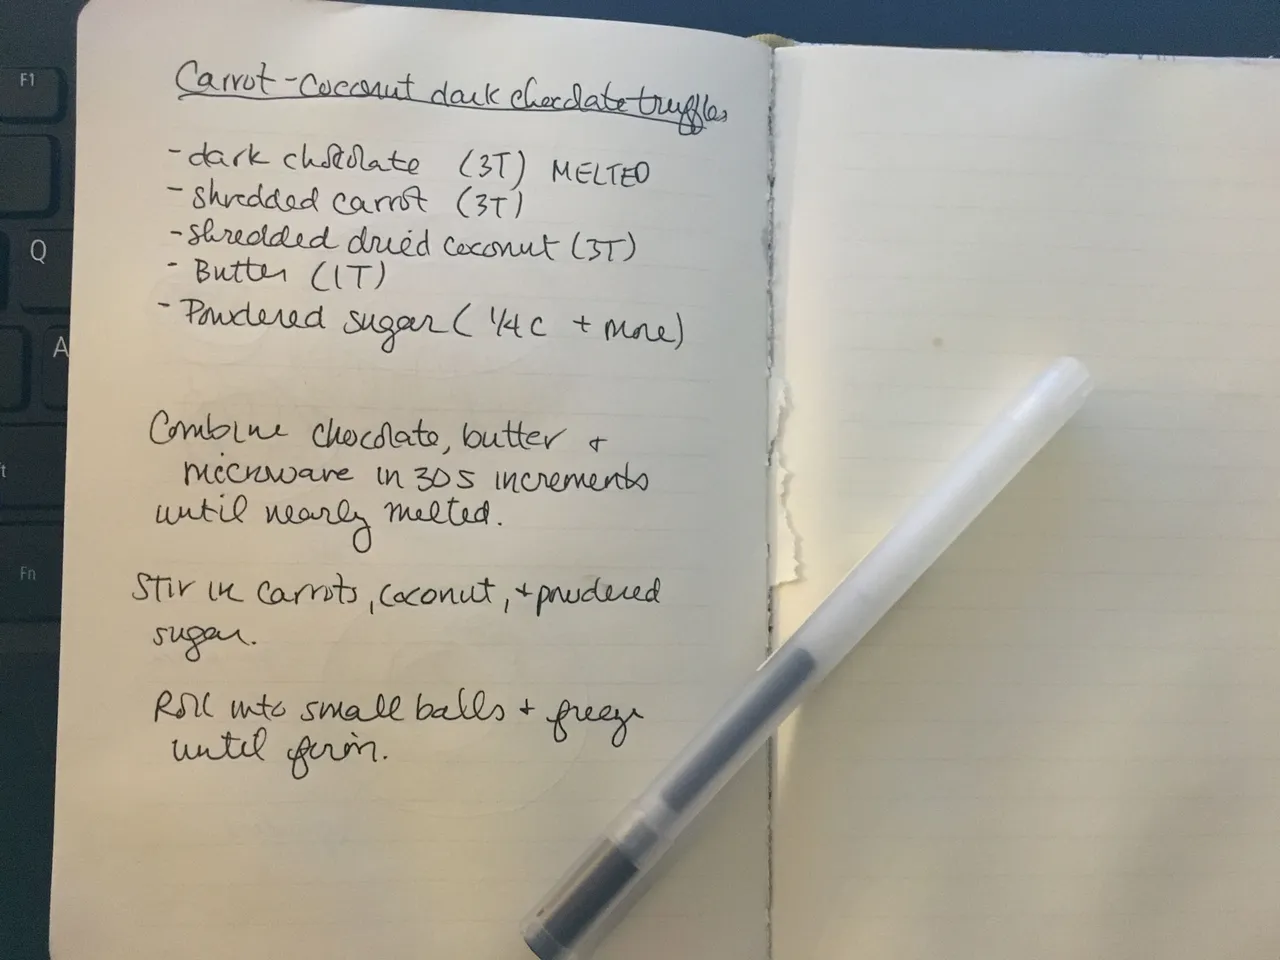 Carrot-Coconut dark chocolate truffles
- dark chocolate (3T) MELTED
- shredded carrot (3T)
- shredded dried coconut (3T)
- Butter (1T)
- Powdered sugar (1/4 C + more)
Combine chocolate, butter +
microwave in 30S increments
until nearly melted.
Stir in carrots, coconut, + powdered
sugar.
Roll into small balls + freeze
until firm.
F1
Q
A
Fn